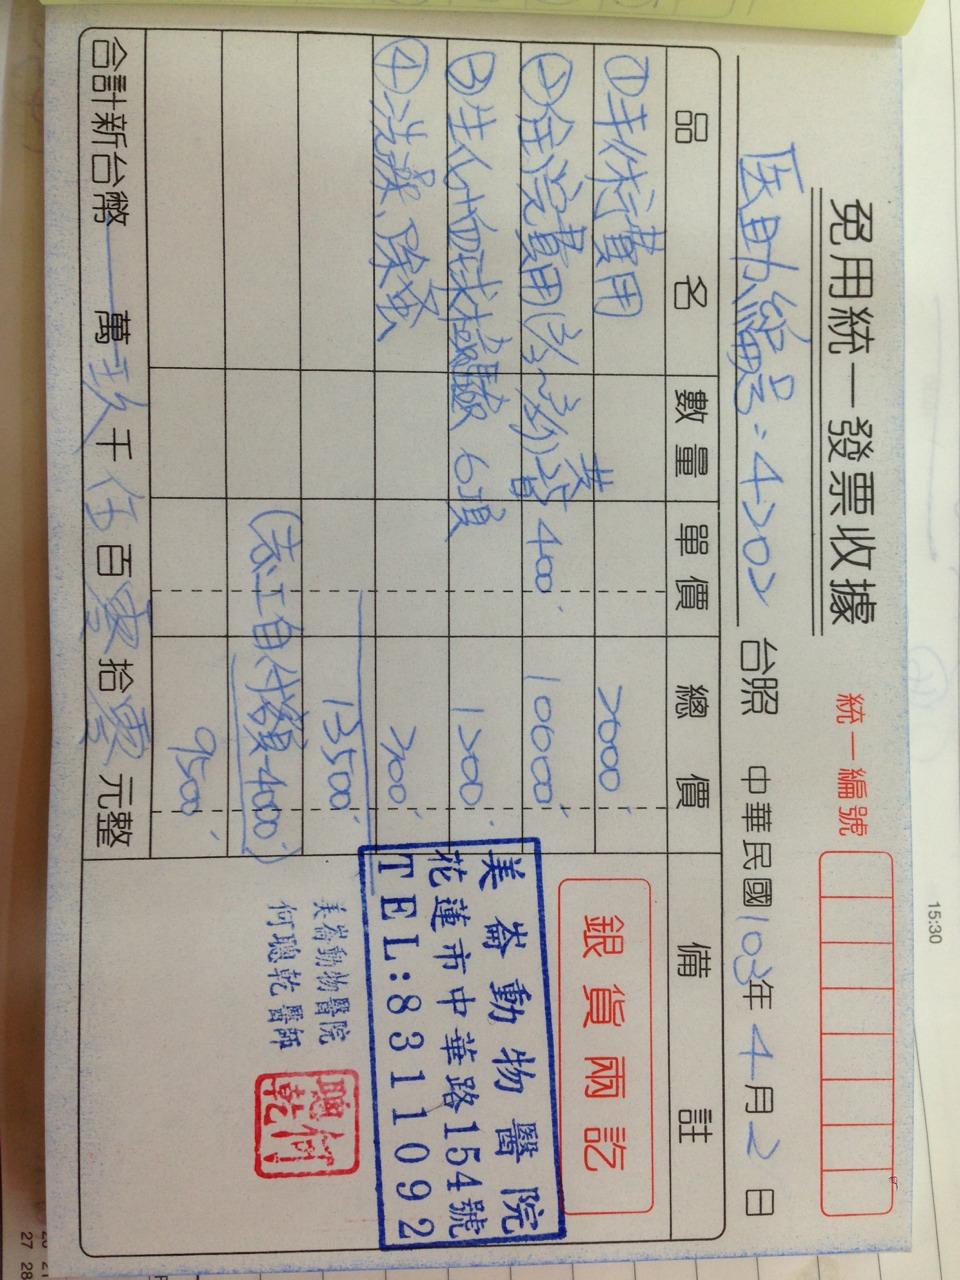 免用統一發票收據
統一編號
医助編号:4202 台照 中華民國103年4月2日
品名 數量 單價 總價 備註
①手術費用 2000
②住院費用 400 10000
③生化血球檢驗 6項 1200
④洗澡、除蚤 300
13500
(志工自付額-4000)
9500
合計新台幣 萬玖千伍百零拾零元整
銀貨兩訖
美崙動物醫院
花蓮市中華路154號
TEL:8311092
美崙動物醫院
何聰乾醫師
何聰乾
15:30
27 28